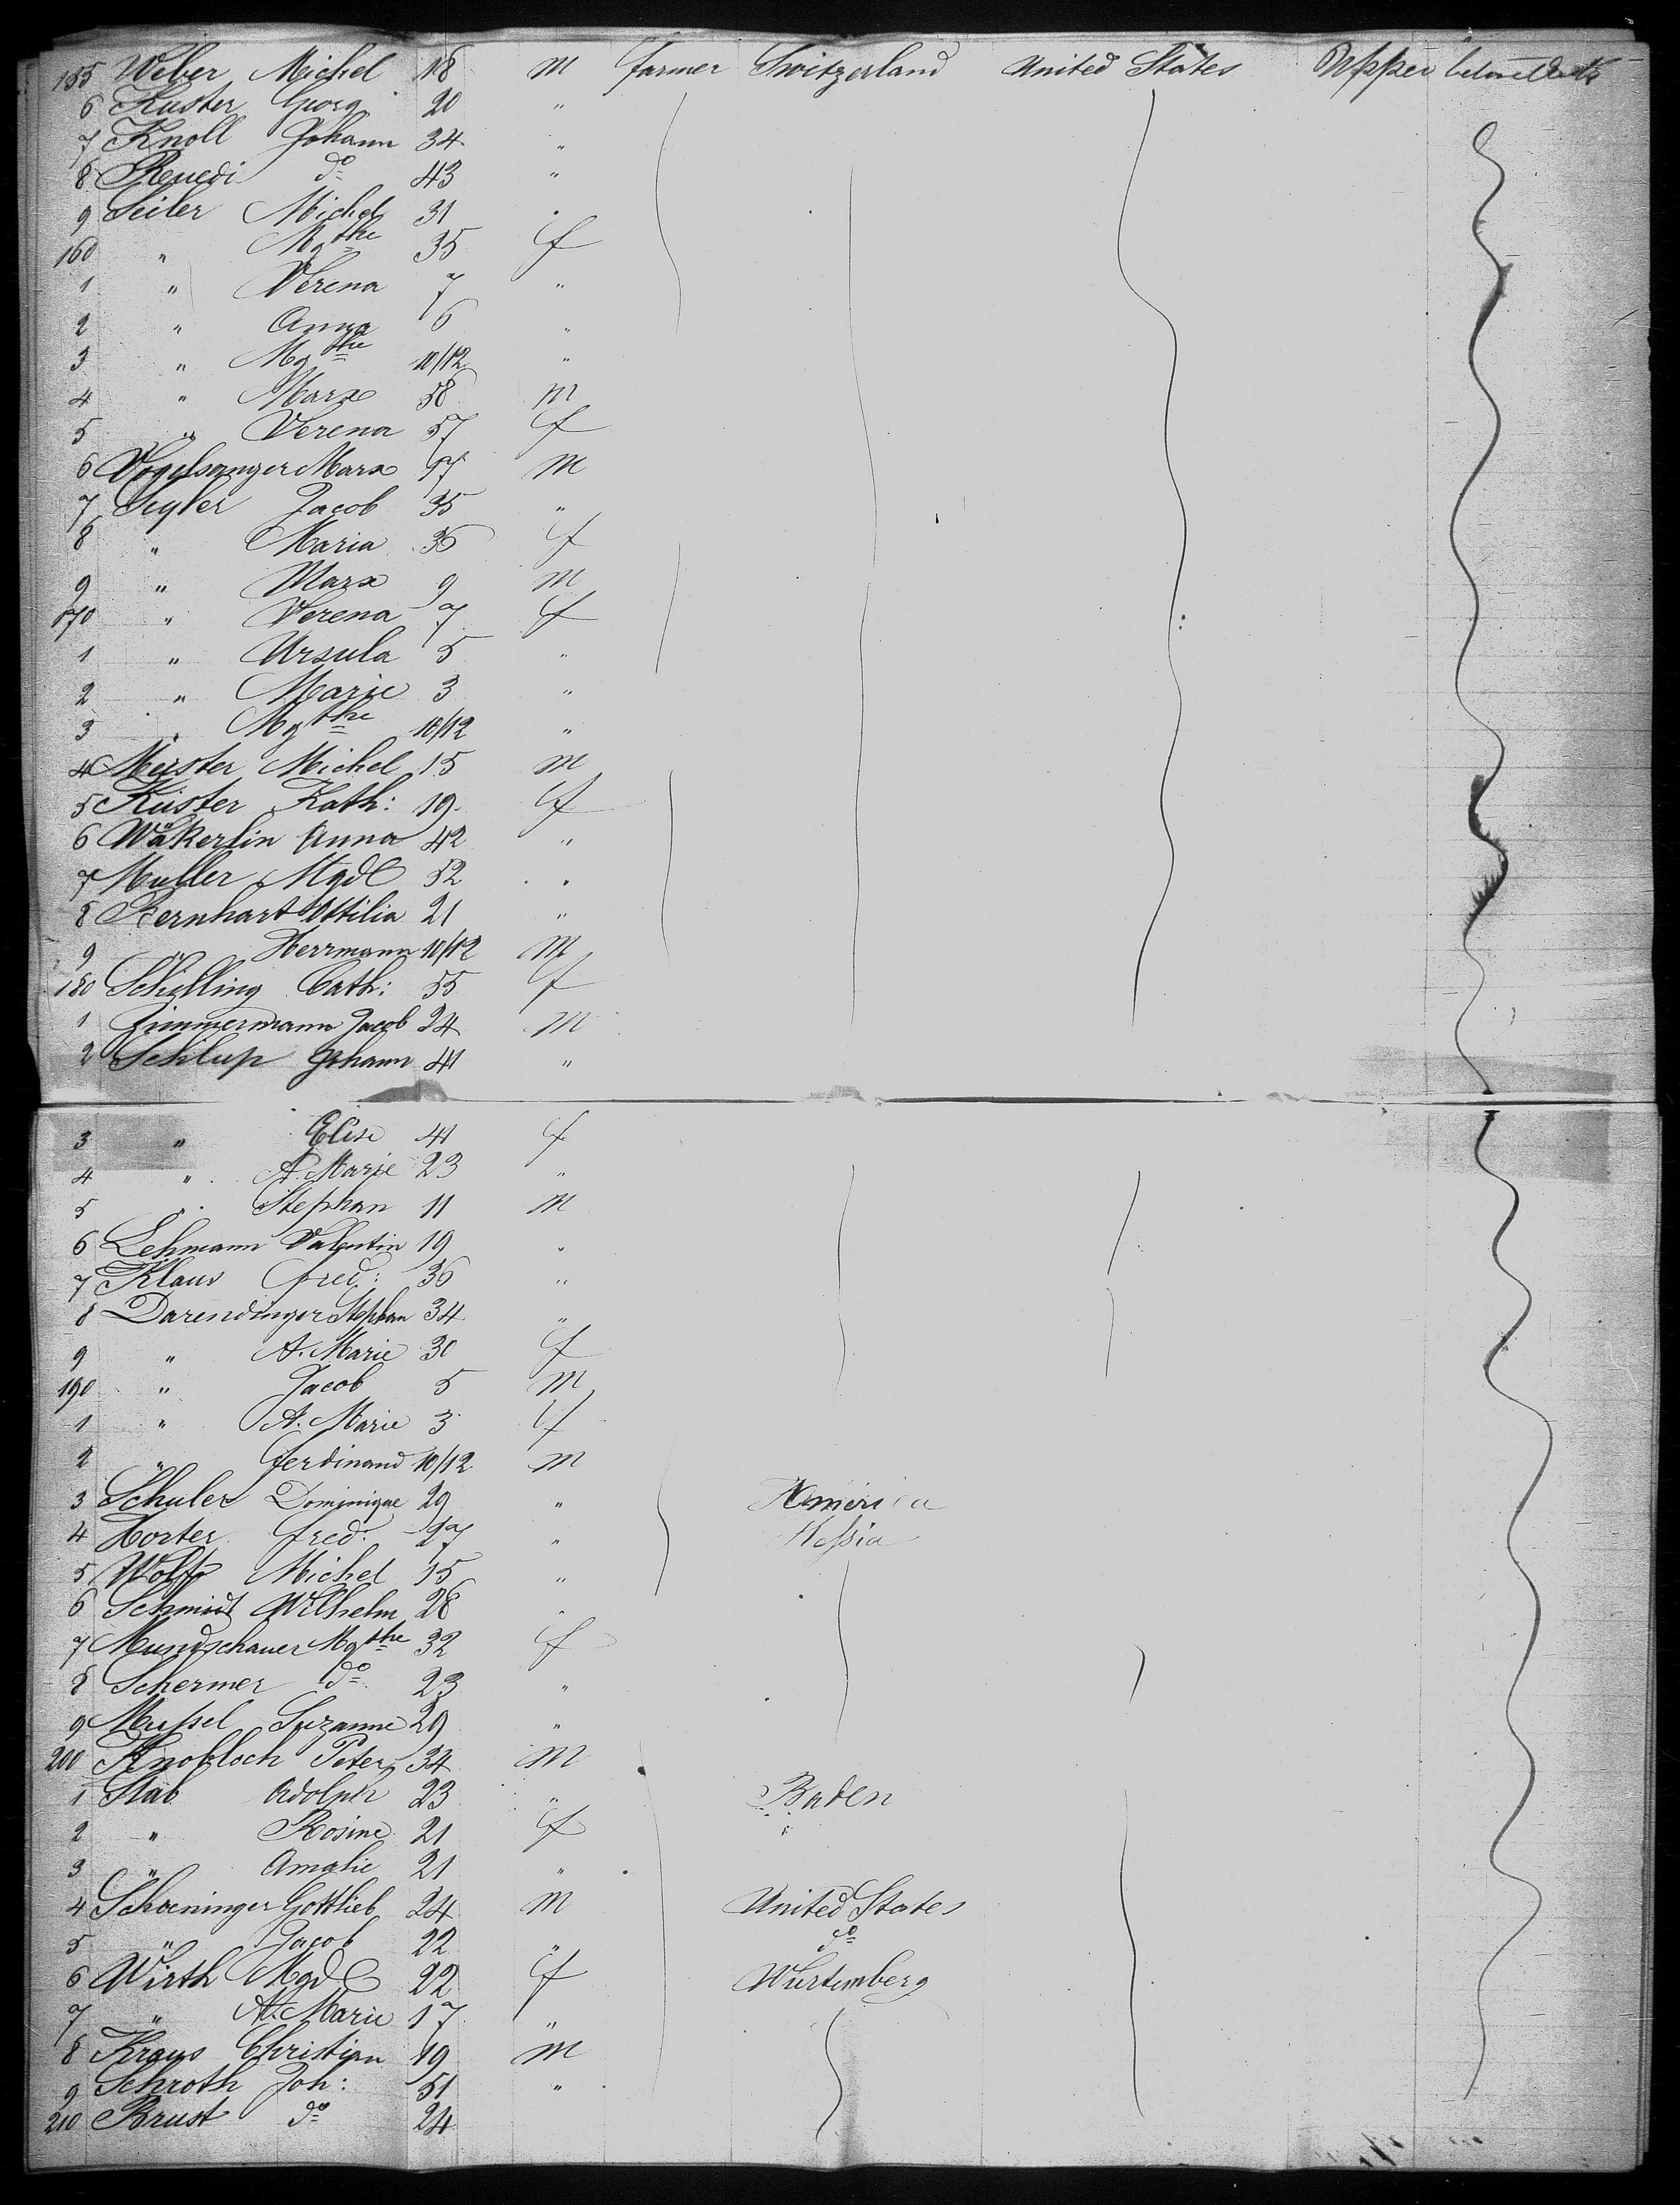 155 Weber Michel 18 m farmer Switzerland United States Upper between decks
6 Kuster Georg 20 "
7 Knoll Johann 34 "
8 Ruedi do 43 "
9 Seiler Michel 31 "
160 " Mgthe 35 f
1 " Verena 7 "
2 " Anna 6 "
3 " Mgthe 10/12 "
4 " Marx 58 m
5 " Verena 57 f
6 Vogelsanger Marx 47 m
7 Jacob 35 "
8 " Maria 36 f
9 " Marx 9 m
170 " Verena 7 f
1 " Ursula 5 "
2 " Marie 3 "
3 " Mgthe 10/12 "
4 Meister Michel 15 m
5 Küster Kath: 19 f
6 Wäkerlin Anna 42 "
7 Muller Mgd 52 "
8 Bernhart Ottilia 21 "
9 " Herrmann 10/12 m
180 Schilling Cath: 55 f
1 Zimmermann Jacob 24 m
2 Schlup Johann 41 "
3 " Elise 41 f
4 " A. Marie 23 "
5 " Stephan 11 m
6 Lehmann Valentin 19 "
7 Klaus fred: 36 "
8 Darendinger Stephan 34 "
9 " A. Marie 30 f
190 " Jacob 5 m
1 " A. Marie 3 f
2 " ferdinand 10/12 m
3 Schuler Dominique 29 " America
4 Horter fred: 27 " Hessia
5 Wolff Michel 15 "
6 Schmidt Wilhelm 28 "
7 Mundschauer Mgthe 32 f
8 Schermer do 23 "
9 Mussel Suzanne 29 "
200 Knobloch Peter 34 m
1 Stab Adolph 23 " Baden
2 " Rosine 21 f "
3 " Amalie 21 "
4 Schoeninger Gottlieb 24 m United States
5 " Jacob 22 " do
6 Wirth Mgd 22 f Wurtemberg
7 " A. Marie 17 "
8 Kraus Christian 19 m
9 Schroth Joh: 51 "
210 Brust do 24